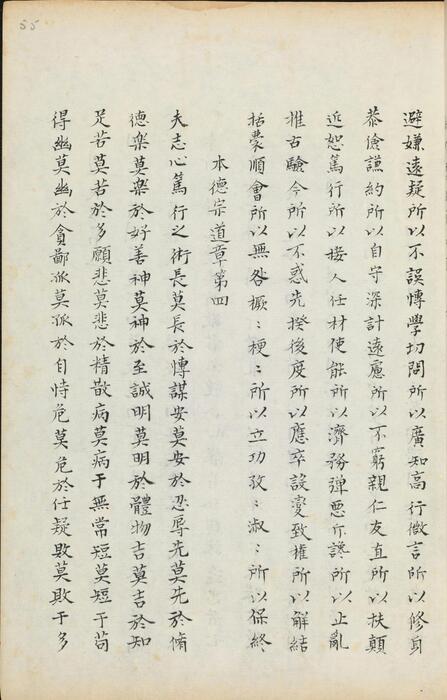 55
避嫌遠疑所以不誤博學切問所以廣知高行微言所以修身
恭儉謙約所以自守深計遠慮所以不窮親仁友直所以扶顛
近恕篤行所以接人任材使能所以濟務殫惡斥讒所以止亂
推古驗今所以不惑先揆後度所以應卒設變致權所以解結
括囊順會所以無咎橛:梗:所以立功孜:淑:所以保終
本德宗道章第四
夫志心篤行之術長莫長於博謀安莫安於忍辱先莫先於脩
德樂莫樂於好善神莫神於至誠明莫明於體物吉莫吉於知
足苦莫苦於多願悲莫悲於精散病莫病于無常短莫短于苟
得幽莫幽於貪鄙孤莫孤於自恃危莫危於任疑敗莫敗于多